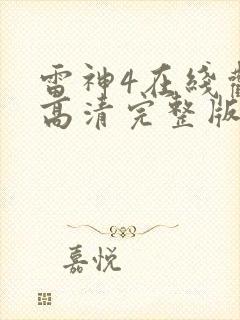 雷神4在线
高清完整版
嘉悦